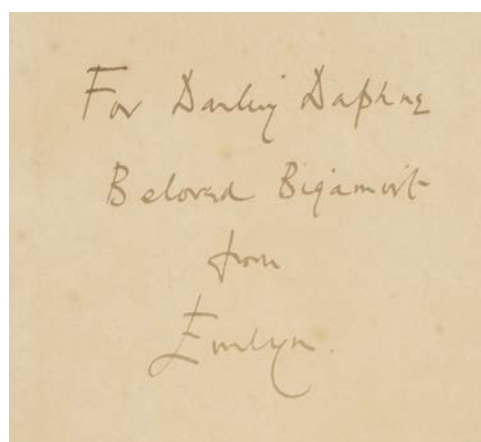 For Darling Daphne
Beloved Bigamist
from
Emlyn.